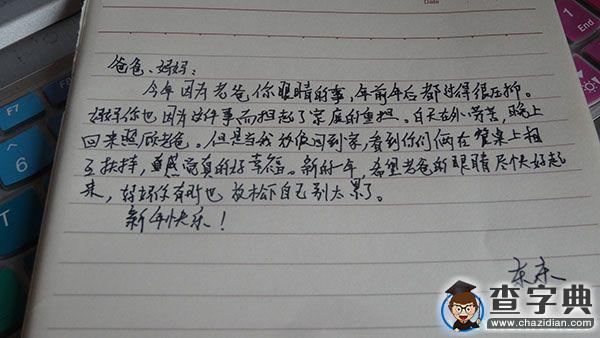 Date
爸爸、妈妈：
今年因为老爸你眼睛的事，年前年后都过得很压抑。
妈妈你也因为这件事而担起了家庭的重担。白天在外劳苦，晚上
回来照顾老爸。但是当我放假回到家，看到你们俩在餐桌上相
互扶持，真的好幸福。新的一年，希望老爸的眼睛尽快好起
来，妈妈你有时也放松下自己别太累了。
新年快乐！
东东
查字典
www.chazidian.com